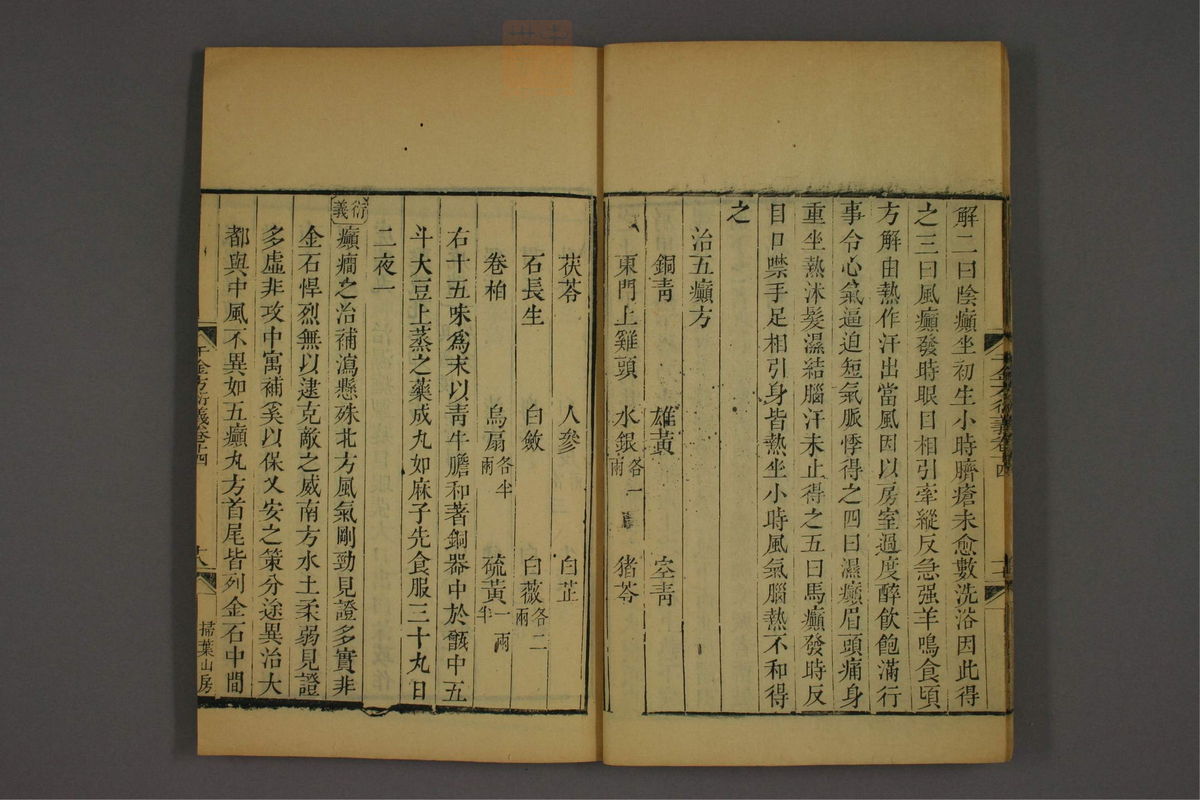 解二曰陰癲坐初生小時臍瘡未愈數洗浴因此得
之三曰風癲發時眼目相引牽縱反急强羊鳴食頃
方解由熱作汗出當風因以房室過度醉飲飽滿行
事令心氣逼迫短氣脈悸得之四曰濕癲眉頭痛身
重坐熱沐髮濕結腦汗未止得之五曰馬癲發時反
目口噤手足相引身皆熱坐小時風氣腦熱不和得
之
治五癲方
銅青 雄黃 空青
東門上雞頭 水銀各一兩 猪苓
茯苓 人參 白芷
石長生 白斂 白薇各二兩
卷柏 烏扇各半兩 硫黃一兩半
右十五味爲末以青牛膽和著銅器中於甑中五
斗大豆上蒸之藥成丸如麻子先食服三十丸日
二夜一
衍義癲癇之治補瀉懸殊北方風氣剛勁見證多實非
金石悍烈無以逮克敵之威南方水土柔弱見證
多虛非攻中寓補奚以保乂安之策分途異治大
都與中風不異如五癲丸方首尾皆列金石中間
千金方衍義卷十四
十八
掃葉山房